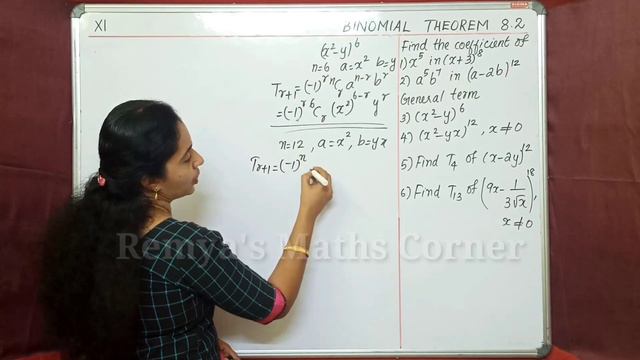 XI
BINOMIAL THEOREM 8.2
(x²-y)⁶
n=6 a=x² b=y
Tᵣ₊₁=(-1)ʳ ⁿCᵣ aⁿ⁻ʳ bʳ
=(-1)ʳ ⁶Cᵣ (x²)⁶⁻ʳ yʳ
n=12, a=x², b=yx
Tᵣ₊₁=(-1)ⁿ
Find the coefficient of
1) x⁵ in (x+3)⁸
2) a⁵b⁷ in (a-2b)¹²
General term
3) (x²-y)⁶
4) (x²-yx)¹², x≠0
5) Find T₄ of (x-2y)¹²
6) Find T₁₃ of (9x - 1/(3√x))¹⁸,
x≠0
Remya's Maths Corner